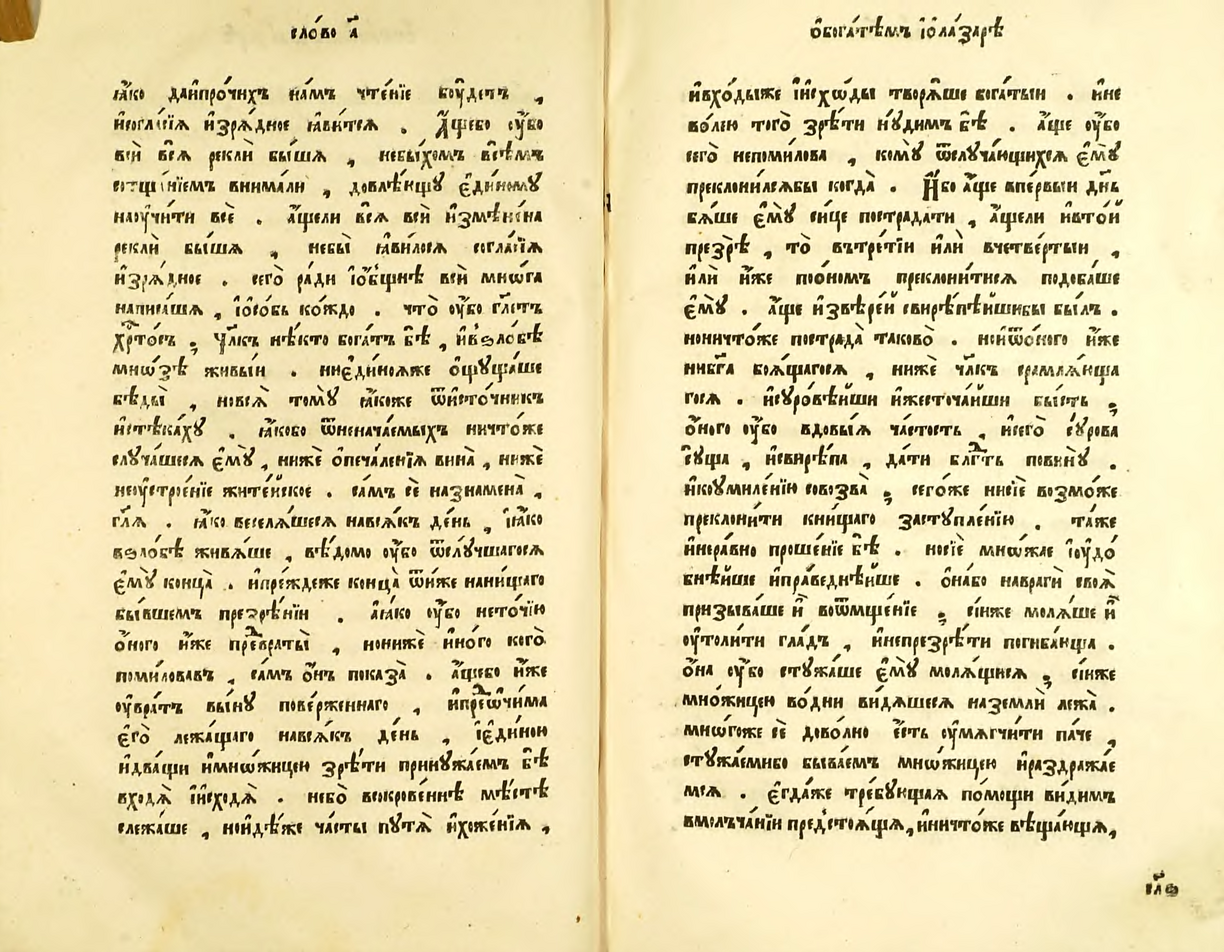 сло́во а҃
ꙗ҆́ко дай́про́чихъ на́мъ чте́нїе бꙋ́детъ ,
и҆согла́сїѧ и҆зрѧ́дное ꙗ҆ви́тсѧ . А҆́щебо ᲂу҆́бо
всѝ всѧ̀ реклѝ бы́шѧ , небы́хомъ всѣ́мъ
сотща́нїемъ внима́ли , довлѣ́ющꙋ є҆ди́номꙋ
наᲂучи́ти всѐ . а҆́щели всѧ̀ всѝ и҆змѣне́на
реклѝ бы́шѧ , небы̀ ꙗ҆ви́лосѧ согла́сїѧ
и҆зрѧ́дное . сегѡ̀ ра́ди і҆ѻ҆́бщнѣ всѝ мнѡ́га
написа́шѧ , і҆ѻ҆со́бь ко́ждо . что̀ ᲂу҆́бо гл҃етъ
хрⷭ҇то́съ ; чл҃къ нѣ́кто бога́тъ бѣ̀ , и҆въѕло́бѣ
мно́зѣ живы́и . ниє҆ди́ноѧже ѻ҆щꙋща́ше
бѣды̀ , новсѧ̀ томꙋ̀ ꙗ҆́коже ѿи҆сто́чникъ
и҆стѣка́хꙋ . ꙗ҆́кобо ѿнеча́емыхъ ничто́же
слꙋча́шесѧ є҆мꙋ̀ , нижѐ ѻ҆печале́нїѧ вина̀ , нижѐ
неᲂустрое́нїе жите́йское . са́мъ сѐ назна́мена ,
гл҃ѧ . ꙗ҆́ко веселѧ́шесѧ навсѧ́къ де́нь , і҆ꙗ҆́ко
въѕло́бѣ живѧ́ше , вѣ́домо ᲂу҆́бо ѿслꙋ́чшагосѧ
є҆мꙋ̀ конца̀ . и҆пре́ждеже конца̀ ѿи҆́же нани́щаго
бы́вшемъ презрѣ́нїи . а҆ꙗ҆́ко ᲂу҆́бо нето́чїю
ѻ҆́ного и҆́же преⷣвраты̀ , нонижѐ и҆но́го кого̀
поми́ловавъ , са́мъ ѻ҆́нъ показа̀ . а҆́щебо и҆́же
ᲂу҆вра́тъ вы́нꙋ пове́рженнаго , и҆преⷣѻчи́ма
є҆гѡ̀ лежа́щаго навсѧ́къ де́нь , і҆є҆ди́ною
и҆два́щи и҆мно́жицею зрѣ́ти принꙋжа́емъ бѣ̀
входѧ̀ і҆и҆сходѧ̀ . небо̀ восокрове́ннѣ мѣ́стѣ
слежа́ше , нои҆дѣ́же ча́сты пꙋтѧ̀ и҆хоже́нїѧ ,
ѻ҆бога́тѣмъ і҆ѻ҆ла́зарѣ
и҆вхо́дыже і҆и҆схѡ́ды творѧ́ше бога́тыи . и҆не
во́лею того̀ зрѣ́ти нꙋ́димъ бѣ̀ . а҆́ще ᲂу҆́бо
сего̀ непоми́лова , комꙋ̀ ѿслꙋча́ющихсѧ є҆мꙋ̀
преклони́лсѧбы когда̀ . И҆́бо а҆́ще впе́рвыи дн҃ь
бѧ́ше є҆мꙋ̀ си́це пострада́ти , а҆́щели и҆вто́й
презрѣ̀ , то̀ въ́тре́тїи и҆лѝ вчетве́ртыи ,
и҆лѝ и҆́же поѻ҆́номъ преклони́тисѧ подоба́ше
є҆мꙋ̀ . а҆́ще и҆звѣре́й свирѣ́пѣйшибы бы́лъ .
ноничто́же пострада̀ таково̀ . нои҆ѿѻ҆́ного и҆́же
нибг҃а боѧ́щагосѧ , нижѐ чл҃къ срамлѧ́юща
госѧ . и҆сꙋро́вѣйши и҆жесточа́йши бы́сть ;
ѻ҆́ного ᲂу҆́бо вдовы́ѧ ча́стость , и҆сего̀ сꙋ́рова
сꙋ́ща , и҆свирѣ́па , да́ти блгⷣть пови́нꙋ .
и҆коᲂумиле́нїю совозва̀ ; сего́же нисїѐ возмо́же
преклони́ти кни́щаго застꙋпле́нїю . та́же
и҆нера́вно проше́нїе бѣ̀ . носїѐ мно́жае і҆ᲂудо́
бнѣйше и҆пра́веднѣйше . ѻ҆на́бо навраги̑ своѧ̀
призыва́ше и҆̀ воѿмще́нїе ; си́иже молѧ́ше и҆̀
ᲂу҆толи́ти гла́дъ , и҆непрезрѣ́ти погиба́юща .
ѻ҆на̀ ᲂу҆́бо стꙋжа́ше є҆мꙋ̀ молѧ́щисѧ ; си́иже
мно́жицею во́дни ви́дѧшесѧ наземлѝ лежа̀ .
мно́гоже сѐ дово́лно є҆́сть ᲂу҆мѧгчи́ти па́че ,
стꙋжа́емибо быва́емъ мно́жицею и҆раздража́е
мсѧ . є҆гда́же тре́бꙋющаѧ по́мощи ви́димъ
вмолча́нїи предстоѧ́щѧ , и҆ничто́же вѣща́ющѧ ,
слѡ